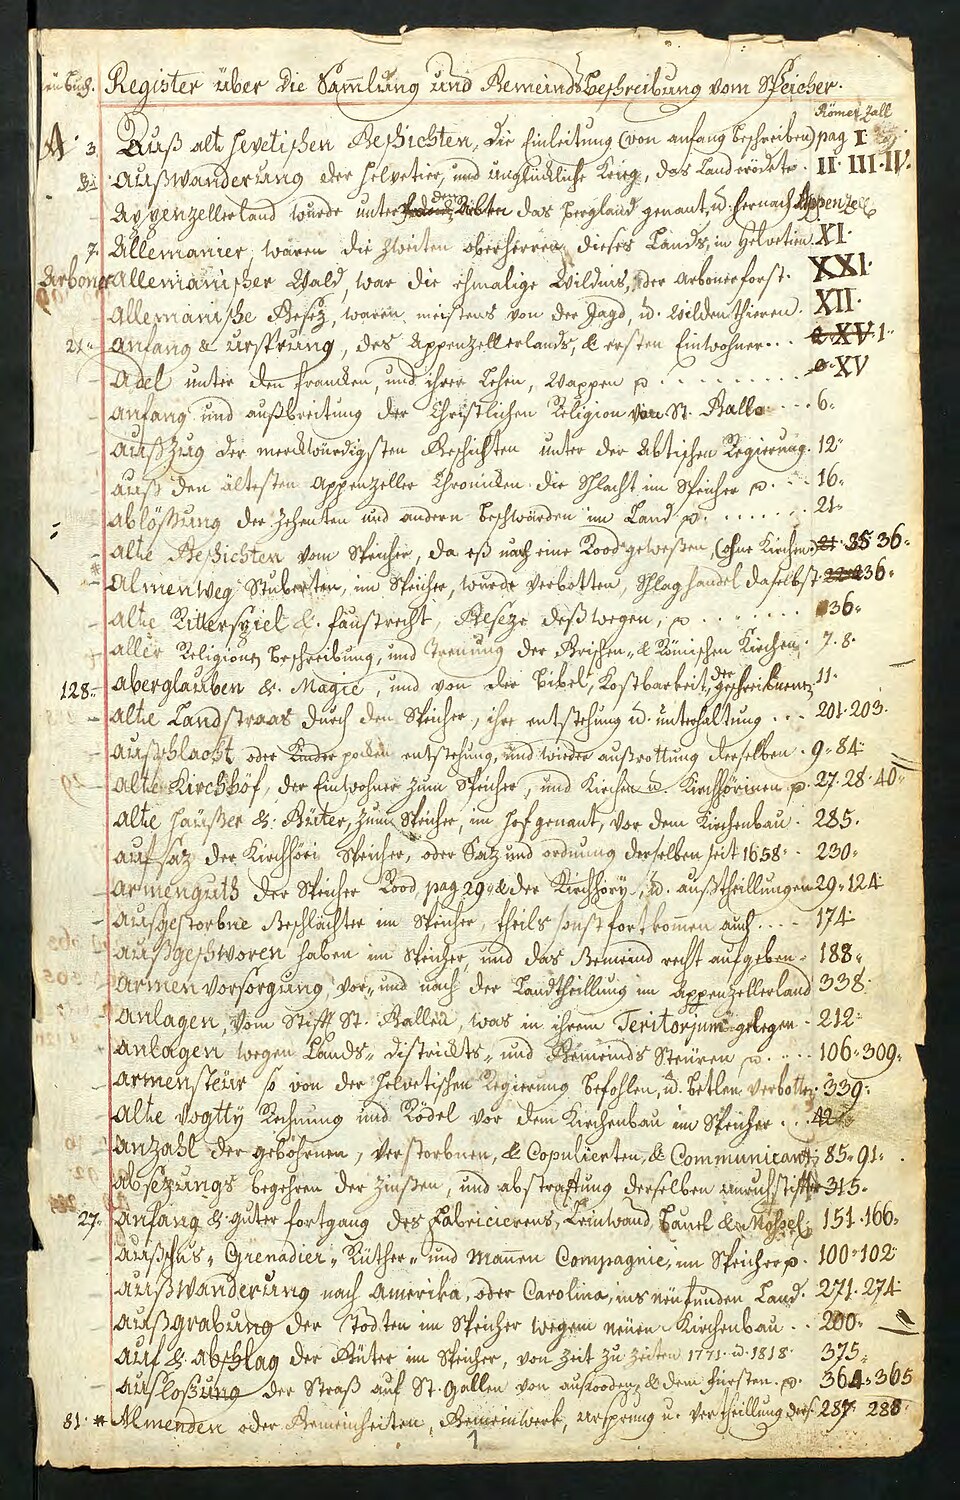 Register über die Samlung und Gemeinds Beschreibung vom Speicher.
Römer Zall
A 3 Auß alt helvetischen Geschichten, die Einleitung (von anfang beschreiben) pag I
Außwanderung der Helvetier, und unglückliche Krieg, das Land verödete. II III IV.
Appenzellerland wurde unter den Äbten das Bergland genant, u. hernach Appenzell
7. Allemanier, waren die zweiten oberherren dieses Lands, in Helvetien XI.
Arboner Allemanischer Wald, war die ehmalige Wildnis, der Arbonerforst. XXI.
Allemanische Gesez, waren meistens von der Jagd, u. wilden thieren. XII.
21. Anfang & ursprung, des Appenzellerlands, & ersten Einwohner... XV 1.
Adel unter den Francken, und ihrer Lehen, Wappen p. XV
Anfang und außbreitung der Christlichen Religion von St. Gallo 6.
Außzug der merckwürdigsten Geschichten unter der Abtischen Regierung. 12
Auß den ältesten Appenzeller Chronicken die Schlacht im Speicher p. 16.
Ablößung der Zehenten und andern beschwärden im Land p. 21.
Alte Geschichten vom Speicher, da eß noch eine Rood geweßen, (ohne Kirchen) 35 36.
Almenweg Stuberten, im Speicher, wurde verbotten, Schlaghandel daselbst 36.
Alte Ritterspiel & faustrecht, Geseze deßwegen, p. 36.
Aller Religionen beschreibung, und Trenung der Grichen & Römischen Kirchen. 7. 8.
128. Aberglauben & Magie, und von der Bibel, Kostbarkeit, der geschreibnen 11.
Alte Landstraas durch den Speicher, ihre entstehung u. unterhaltung ... 201. 203.
Außschlacht oder Kinder pocken entstehung, und wieder außrottung derselben. 9. 84.
Alte Kirchhöf, der Einwohner zum Speicher, und Kirchen u. Kirchhörinen p. 27. 28. 40.
Alte häußer & Güter, zum Speicher, im hof genant, vor dem Kirchenbau. 285.
Aufsaz der Kirchhöri Speicher, oder Saz und ordnung derselben seit 1658. 230.
Armenguth der Speicher Rood, pag 29. & der Kirchhöry, u. außtheillungen 29. 124
Außgestorbne Geschlächter im Speicher, theils sonst fortkomen auch .... 174.
Außgeschworen haben im Speicher, und das Gemeind recht aufgeben. 188.
Armen Vorsorgung, vor- und nach der Landtheillung im Appenzellerland 338.
Anlagen, vom Stifft St. Gallen, was in ihrem Teritorium gelegen. 212.
Anlagen wegen Lands- Districkts- und Gemeinds Steüren p. 106. 309.
Armensteür so von der helvetischen Regierung befohlen, u. betlen verbotten. 339.
Alte Vogtty Rechnung und Rödel vor dem Kirchenbau im Speicher ... 42
Anzahl der gebohrnen, verstorbnen, & Copulierten, & Communicanten 85. 91.
Absezungs begehren der Zinßen, und abstraffung derselben unruhstifter 315.
27. Anfang & guter fortgang des Fabricierens, Leinwand, Bauel & Moßel. 151. 166.
Außschus, Grenadier, Rüther, und Mannen Compagnie, im Speicher p. 100. 102
Außwanderung nach Amerika, oder Carolina, ins neüfunden Land. 271. 274
Außgrabung der Todten im Speicher wegem neüen Kirchenbau .. 200.
Auf & Abschlag der Güter im Speicher, von Zeit zu Zeiten 1771. u. 1818. 375.
Auslosung der Straß auf St. Gallen von ausrooden, & dem fürsten. p. 364. 365
81. * Almenden oder Gemeinheiten, Gemeinwerk, ursprung u. vertheillung ders. 287. 288.
1